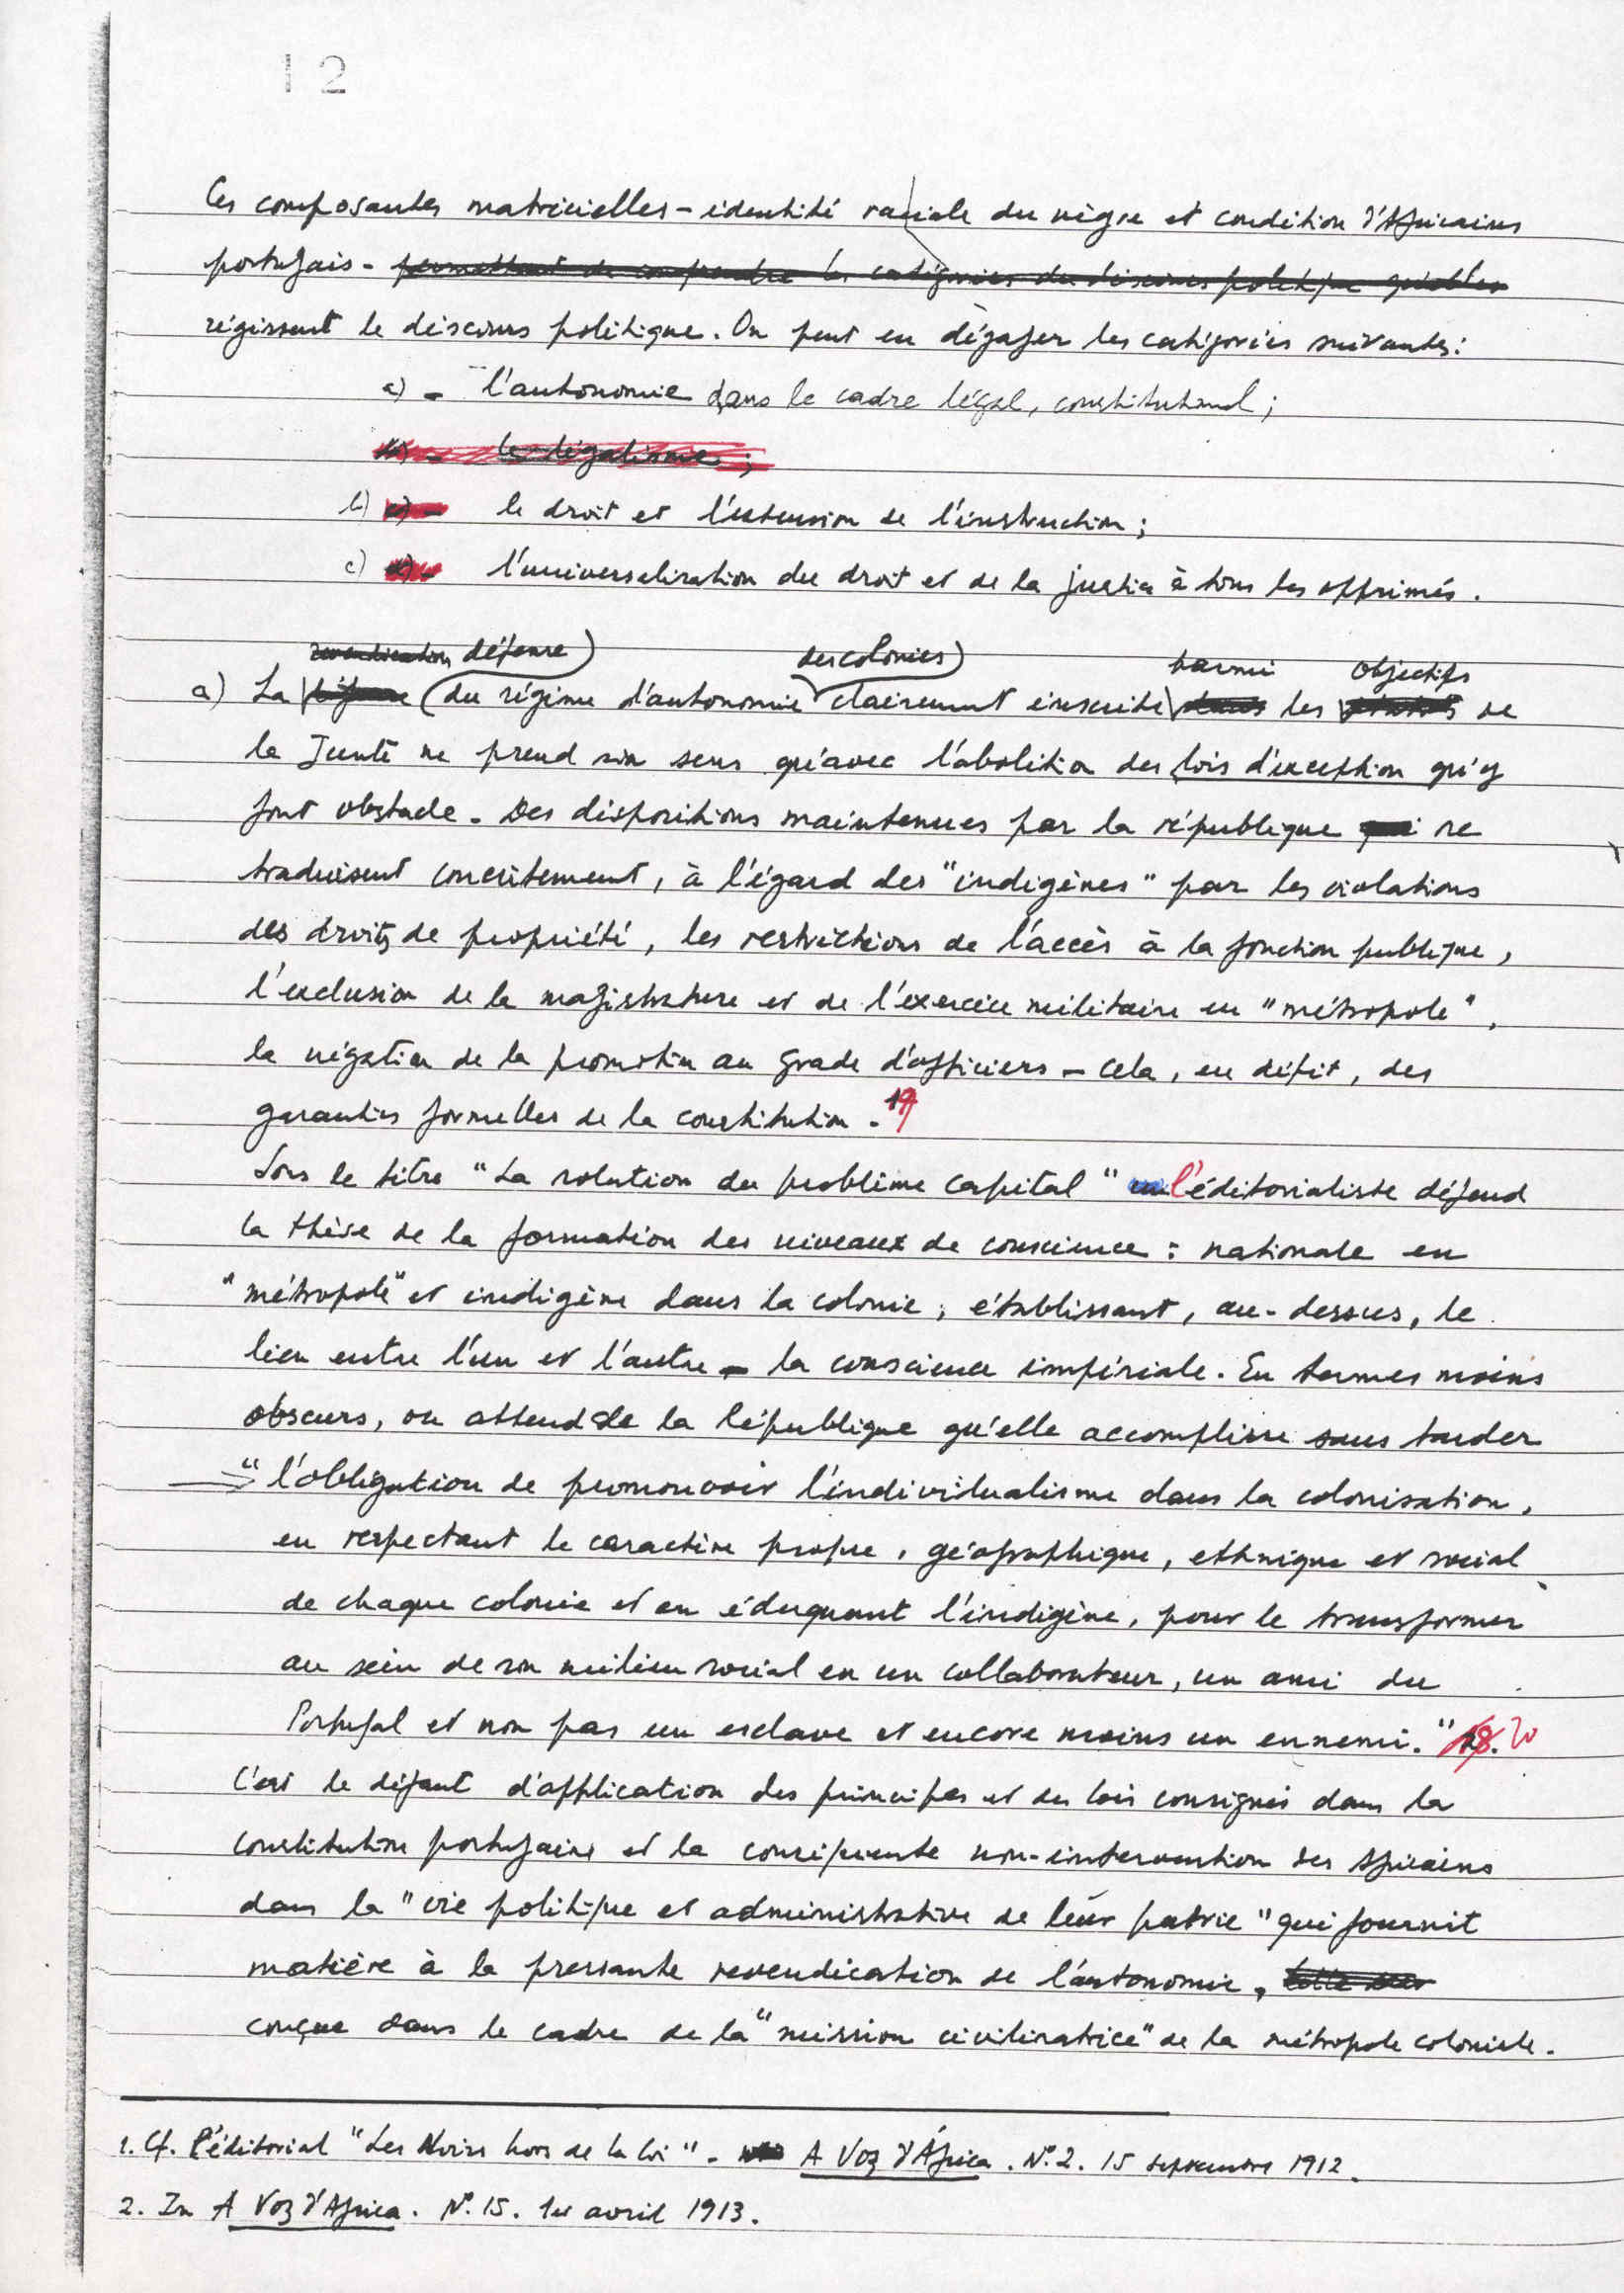 12
Ces composantes matricielles - identité raciale du nègre et condition d'Africains
portugais - permettent de comprendre les catégories du discours politique
régissent le discours politique. On peut en dégager les catégories suivantes:
a) - l'autonomie dans le cadre légal, constitutionnel;
b) - le légalisme;
b) c) - le droit et l'extension de l'instruction;
c) d) - l'universalisation du droit et de la justice à tous les opprimés.
revendication défense) des colonies) parmi objectifs
a) La défense (du régime d'autonomie clairement inscrite dans les statuts de
la Junte ne prend son sens qu'avec l'abolition des lois d'exception qui y
font obstacle. Des dispositions maintenues par la république qui se
traduisent concrètement, à l'égard des "indigènes" par les violations
des droits de propriété, les restrictions de l'accès à la fonction publique,
l'exclusion de la magistrature et de l'exercice militaire en "métropole",
la négation de la promotion au grade d'officiers - cela, en dépit, des
garanties formelles de la constitution. 19
Sous le titre "La solution du problème capital" un l'éditorialiste défend
la thèse de la formation des niveaux de conscience: nationale en
"métropole" et indigène dans la colonie, établissant, au-dessus, le
lien entre l'un et l'autre - la conscience impériale. En termes moins
obscurs, on attend de la République qu'elle accomplisse sans tarder
"l'obligation de promouvoir l'individualisme dans la colonisation,
en respectant le caractère propre, géographique, ethnique et social
de chaque colonie et en éduquant l'indigène, pour le transformer
au sein de son milieu social en un collaborateur, un ami du
Portugal et non pas un esclave et encore moins un ennemi." 18. 20
C'est le défaut d'application des principes et des lois consignés dans la
constitution portugaise et la conséquente non-intervention des Africains
dans la "vie politique et administrative de leur patrie" qui fournit
matière à la pressante revendication de l'autonomie,
conçue dans le cadre de la "mission civilisatrice" de la métropole coloniale.
1. Cf. l'éditorial "Les Noirs hors de la loi" - A Voz d'África. Nº 2. 15 septembre 1912.
2. In A Voz d'Africa. Nº. 15. 1er avril 1913.